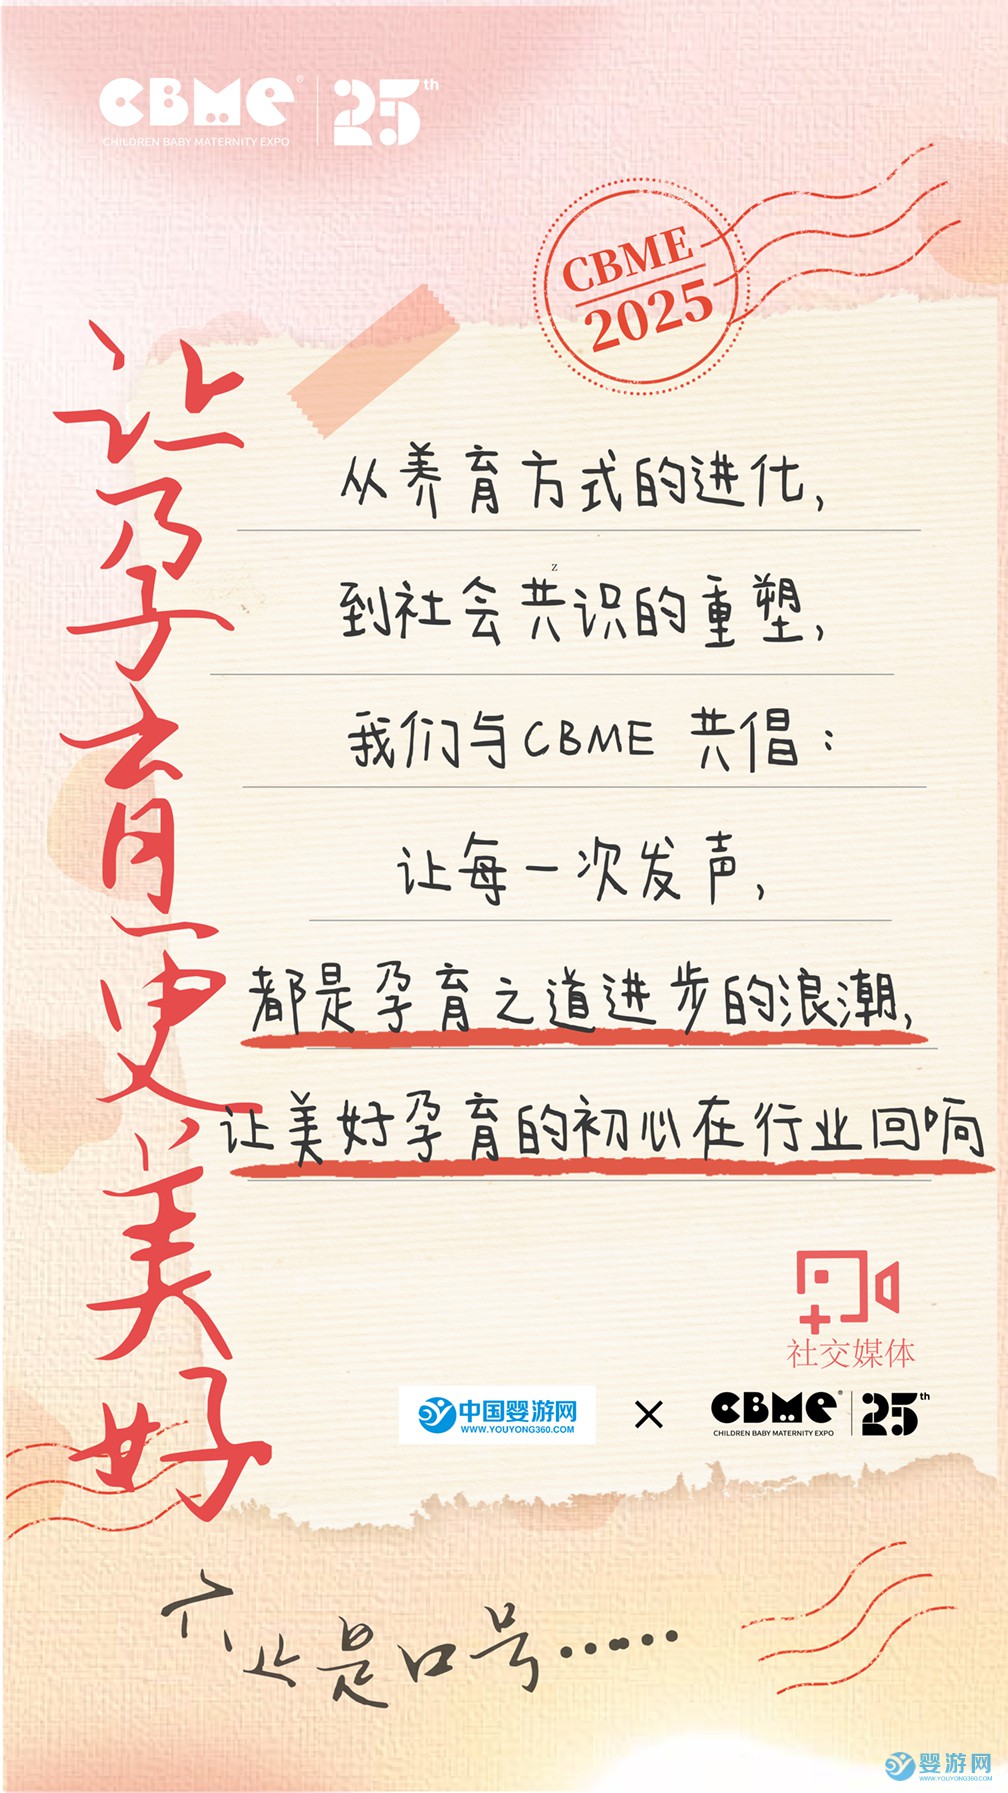 CBME® 25th
CHILDREN BABY MATERNITY EXPO
CBME
2025
让孕育更美好
从养育方式的进化,
z
到社会共识的重塑,
我们与CBME 共倡:
让每一次发声,
都是孕育之道进步的浪潮,
让美好孕育的初心在行业回响
社交媒体
中国婴游网
WWW.YOUYONG360.COM
×
CBME® 25th
CHILDREN BABY MATERNITY EXPO
不止是口号......
婴游网
WWW.YOUYONG360.COM